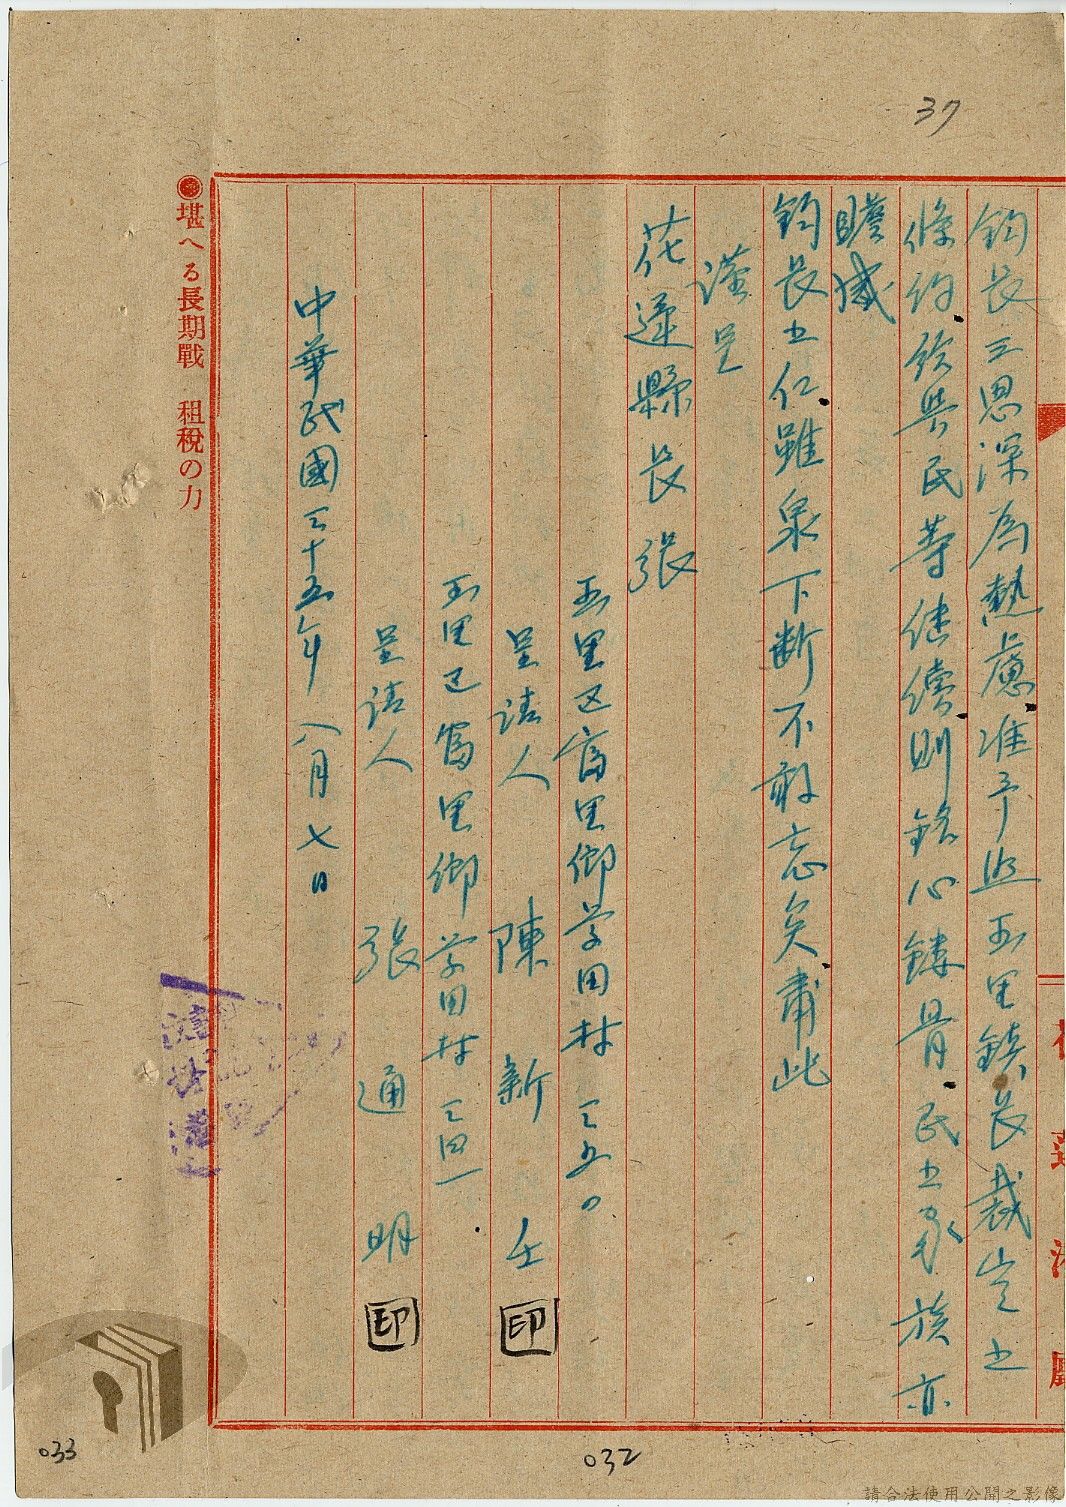 37
鈞長三思深為熱慮准予照玉里鎮長裁定之
條約給與民等继續則銘心鏤骨民之家族亦
瞻感
鈞長之仁雖泉下断不敢忘矣肅此
謹呈
花蓮縣長張
玉里区富里鄉学田村三五〇
呈請人 陳新壬 印
玉里区富里鄉学田村三四一
呈請人 張通明 印
中華民國三十五年八月七日
堪へる長期戰 租稅の力
033
032
請合法使用公開之影像